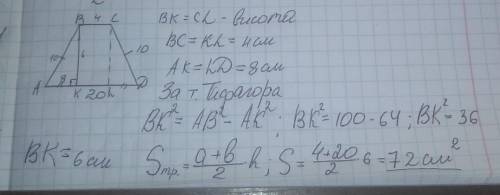 B 4 C
10
10
6
A 8 K 20 L D
BK = CL - висота
BC = KL = 4 см
AK = LD = 8 см
За т. Піфагора
BK² = AB² - AK² ; BK² = 100 - 64 ; BK² = 36
BK = 6 см Sтр. = a + b / 2 h ; S = 4 + 20 / 2 6 = 72 см²